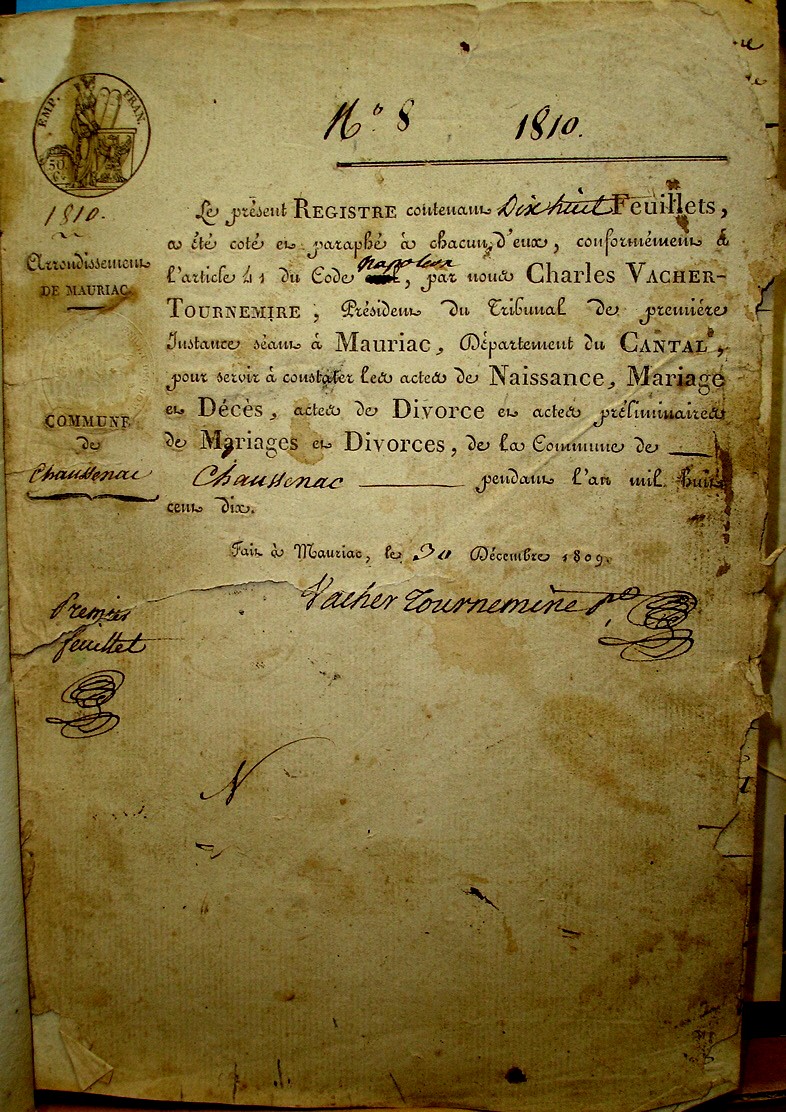 N.° 8 1810.
EMP. FRAN.
50 C.
1810.
Le présent REGISTRE contenant Dix huit Feuillets,
a été coté et paraphé à chacun d'eux, conformément à
Arrondissement
l'article 41 du Code napoleon, par nous Charles VACHER-
DE MAURIAC.
TOURNEMIRE, Président du Tribunal de première
Instance séant à Mauriac, Département du CANTAL,
pour servir à constater les actes de Naissance, Mariage
et Décès, actes de Divorce et actes préliminaires
COMMUNE
de Mariages et Divorces, de la Commune de
de
Chaussenac
Chaussenac pendant l'an mil huit
cent dix.
Fait à Mauriac, le 30 Décembre 1809.
Vacher Tournemine
Premier
feuillet
N